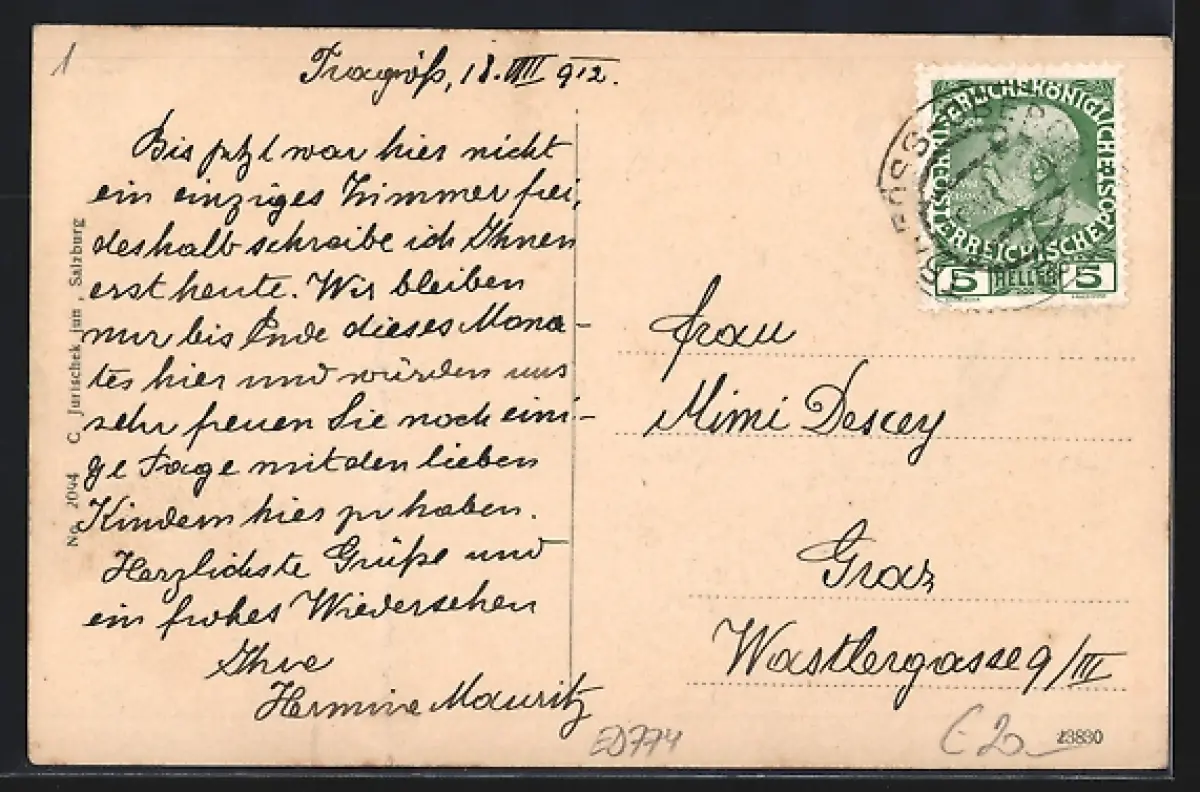 1
Tragöß, 18. VIII 912.
Bis jetzt war hier nicht
ein einziges Zimmer frei,
deshalb schreibe ich Ihnen
erst heute. Wir bleiben
nur bis Ende dieses Mona-
tes hier und würden uns
sehr freuen Sie noch eini-
ge Tage mit den lieben
Kindern hier zu haben.
Herzlichste Grüße und
ein frohes Wiedersehen
Ihre
Hermine Mauritz
No. 2044 C. Jurischek jun, Salzburg
KAISERLICHE KÖNIGLICHE
ÖSTERREICHISCHE POST
5 HELLER 5
Frau
Mimi Descey
Graz
Wastlergasse 9/III
ED774
€ 20
23830